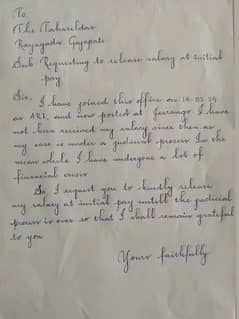 To
The Tahasildar
Rayagada, Gajapati
Sub- Requesting to release salary at initial
pay
Sir,
I have joined this office on
as ARI, and now posted at Jeerango. I have
not been received my salary since then as
my case is under a judicial process. In the
mean while I have undergone a lot of
financial crisis
So, I request you to kindly release
my salary at initial pay untill the judicial
process is over so that I shall remain grateful
to you
Yours faithfully